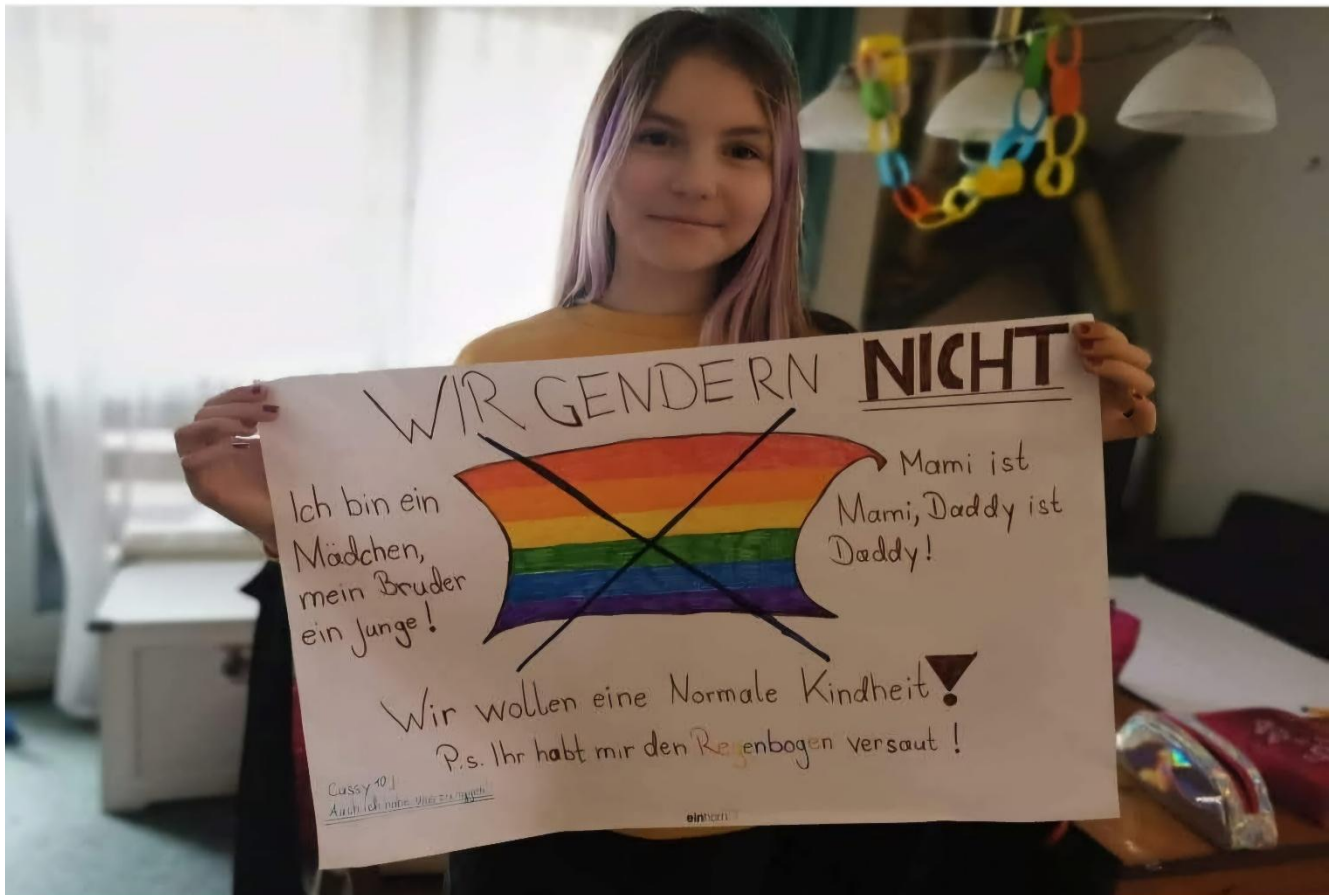 WIR GENDERN NICHT
Ich bin ein
Mädchen,
mein Bruder
ein Junge!
Mami ist
Mami, Daddy ist
Daddy!
Wir wollen eine Normale Kindheit!
P.s. Ihr habt mir den Regenbogen versaut!
Cassy 10J
Auch ich habe was zu sagen!
einhorn